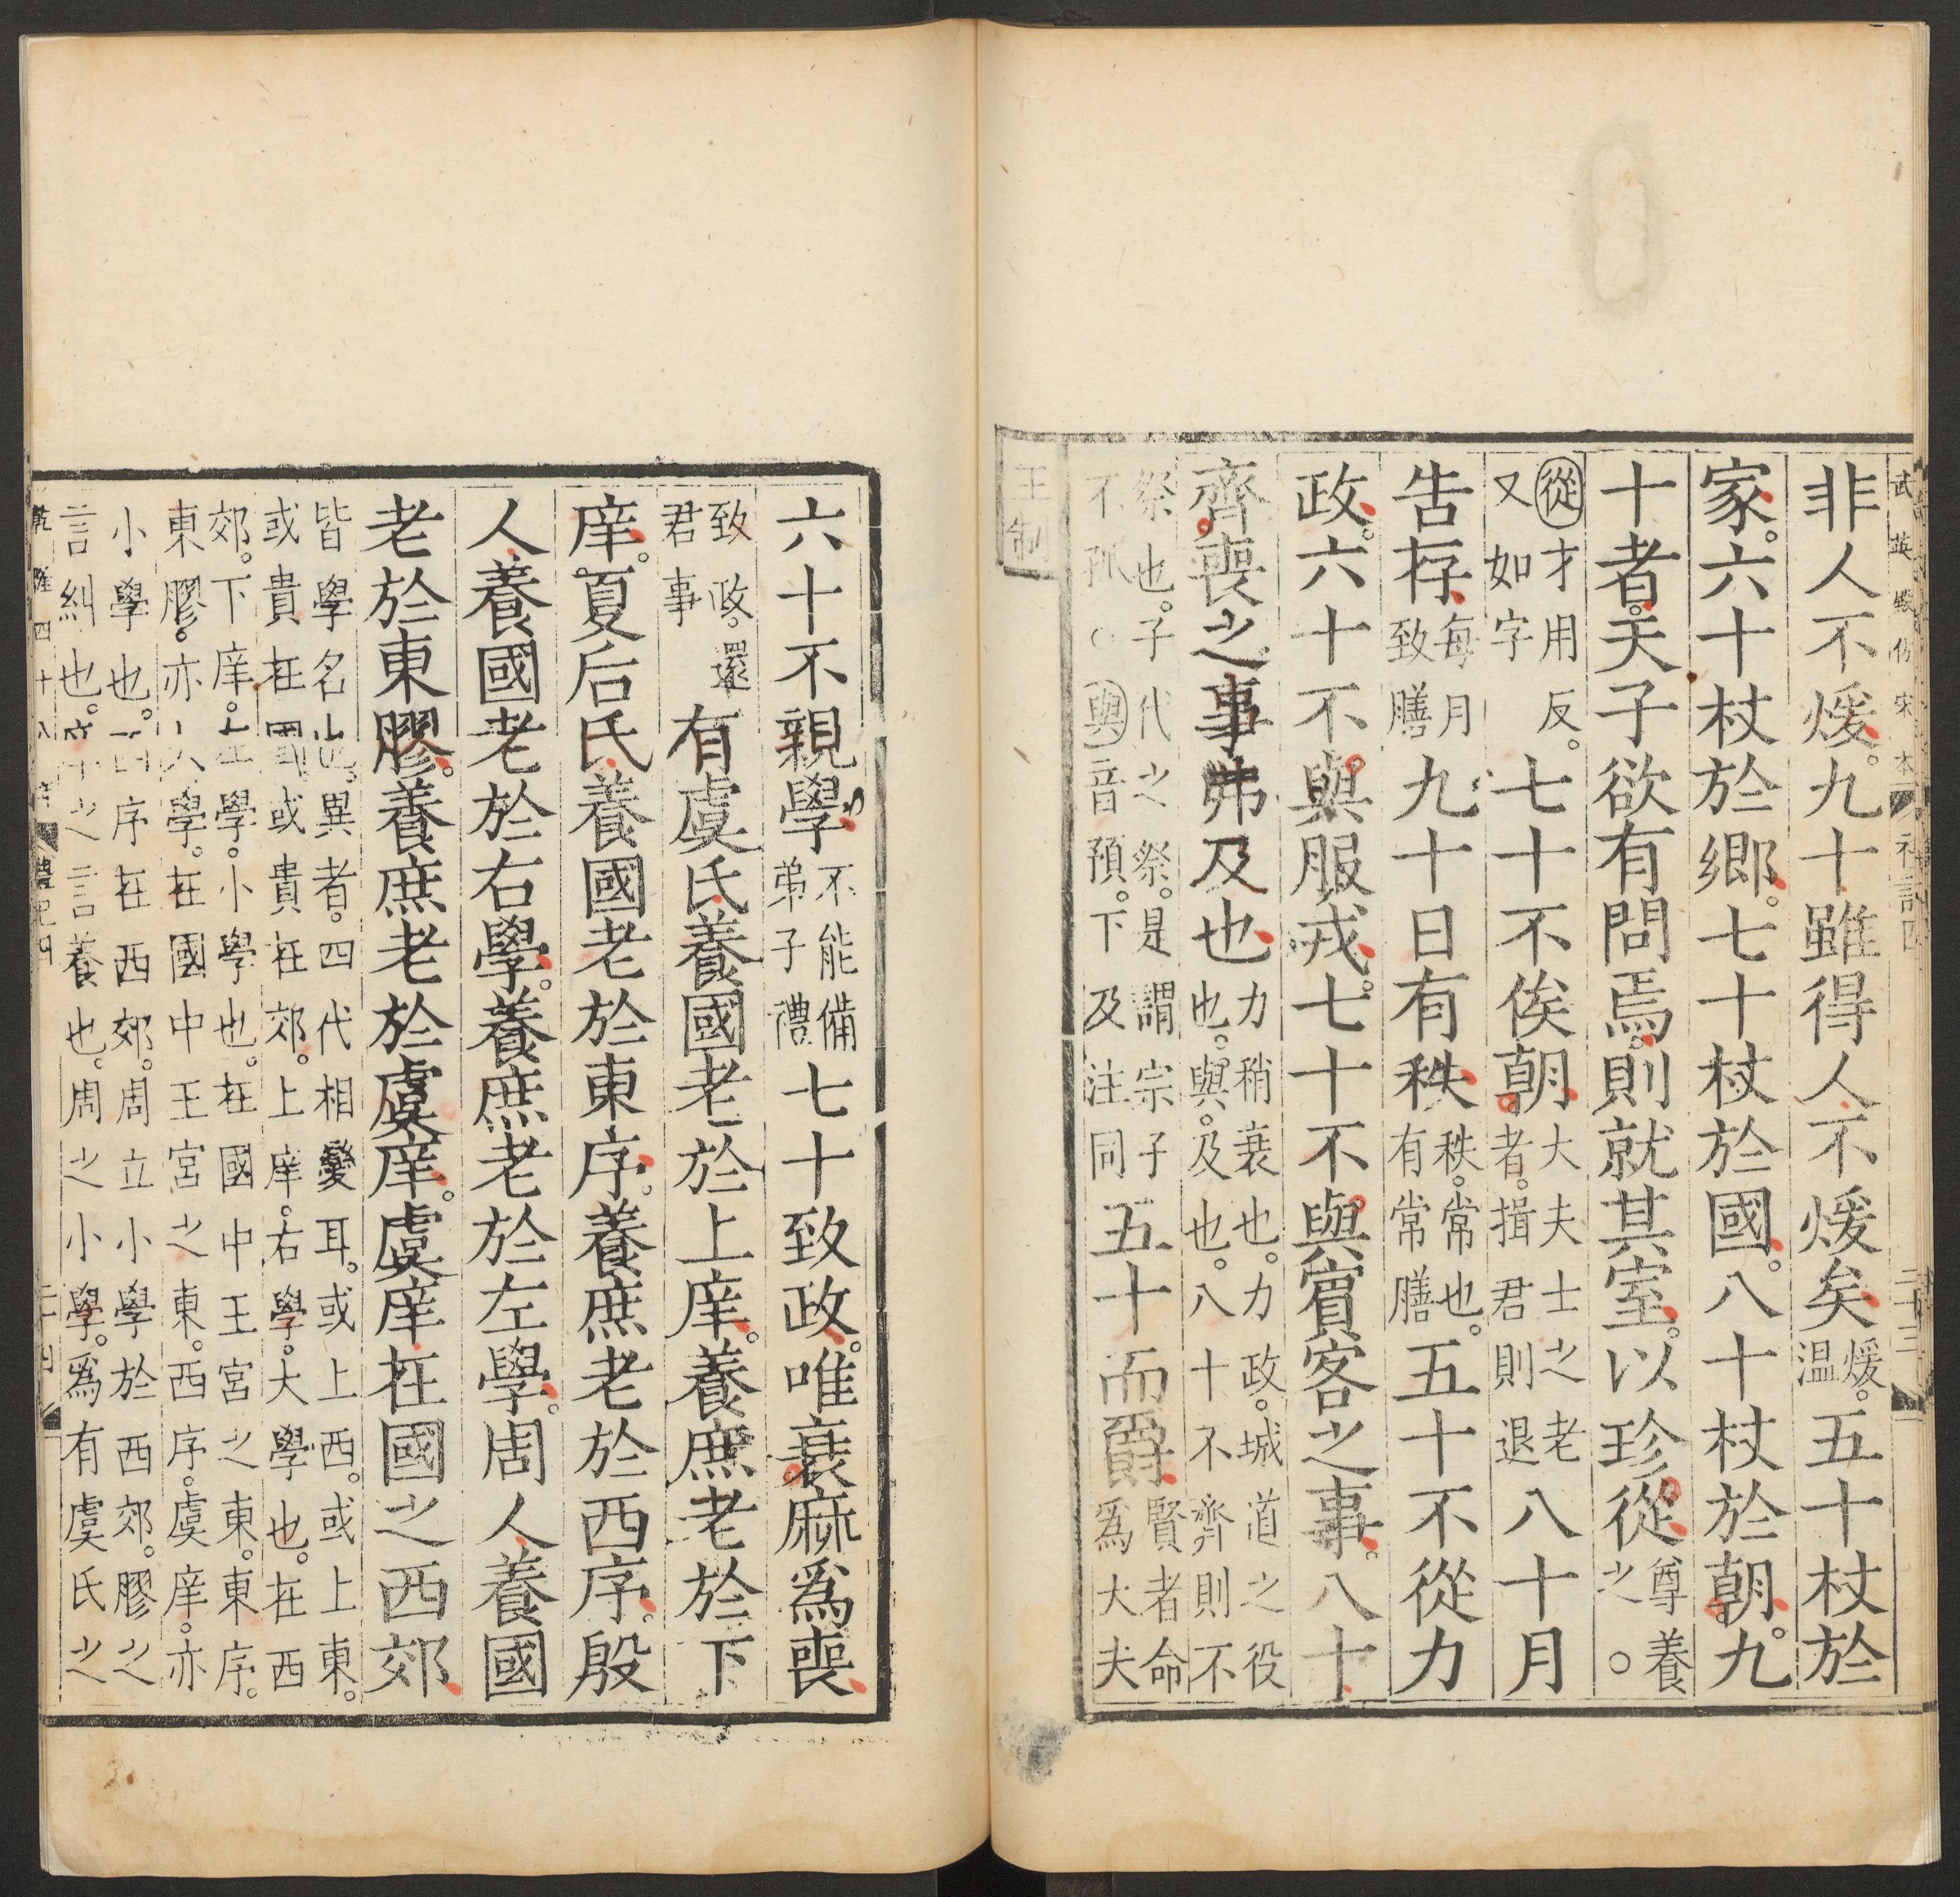 武英殿仿宋本 禮記四 二十三
非人不煖。九十雖得人不煖矣煖。溫五十杖於
家。六十杖於鄉。七十杖於國。八十杖於朝。九
十者。天子欲有問焉。則就其室。以珍從尊養之。○
從才用反。又如字七十不俟朝大夫士之老者。揖君則退八十月
告存每月致膳九十日有秩秩。常也。有常膳五十不從力
政。六十不與服戎。七十不與賓客之事。八十
齊喪之事弗及也力稍衰也。力政。城道之役也。與。及也。八十不齊則不
祭也。子代之祭。是謂宗子不孤。○與音預。下及注同五十而爵賢者命爲大夫
王制
六十不親學不能備弟子禮七十致政。唯衰麻爲喪
致政。還君事有虞氏養國老於上庠。養庶老於下
庠。夏后氏養國老於東序。養庶老於西序。殷
人養國老於右學。養庶老於左學。周人養國
老於東膠。養庶老於虞庠。虞庠在國之西郊
皆學名也。異者。四代相變耳。或上西。或上東。
或貴在國。或貴在郊。上庠。右學。大學也。在西
郊。下庠。左學。小學也。在國中王宮之東。東序。
東膠。亦大學。在國中王宮之東。西序。虞庠。亦
小學也。西序在西郊。周立小學於西郊。膠之
言糾也。庠之言養也。周之小學。爲有虞氏之
乾隆四十八年 禮記四 二十四